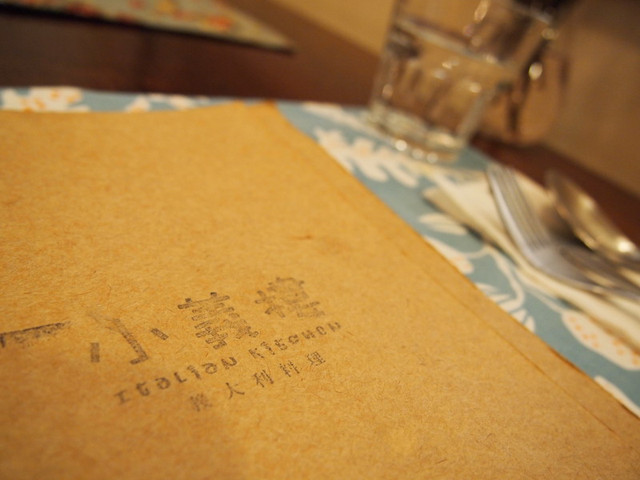 小義樓
Italian Kitchen
義大利料理